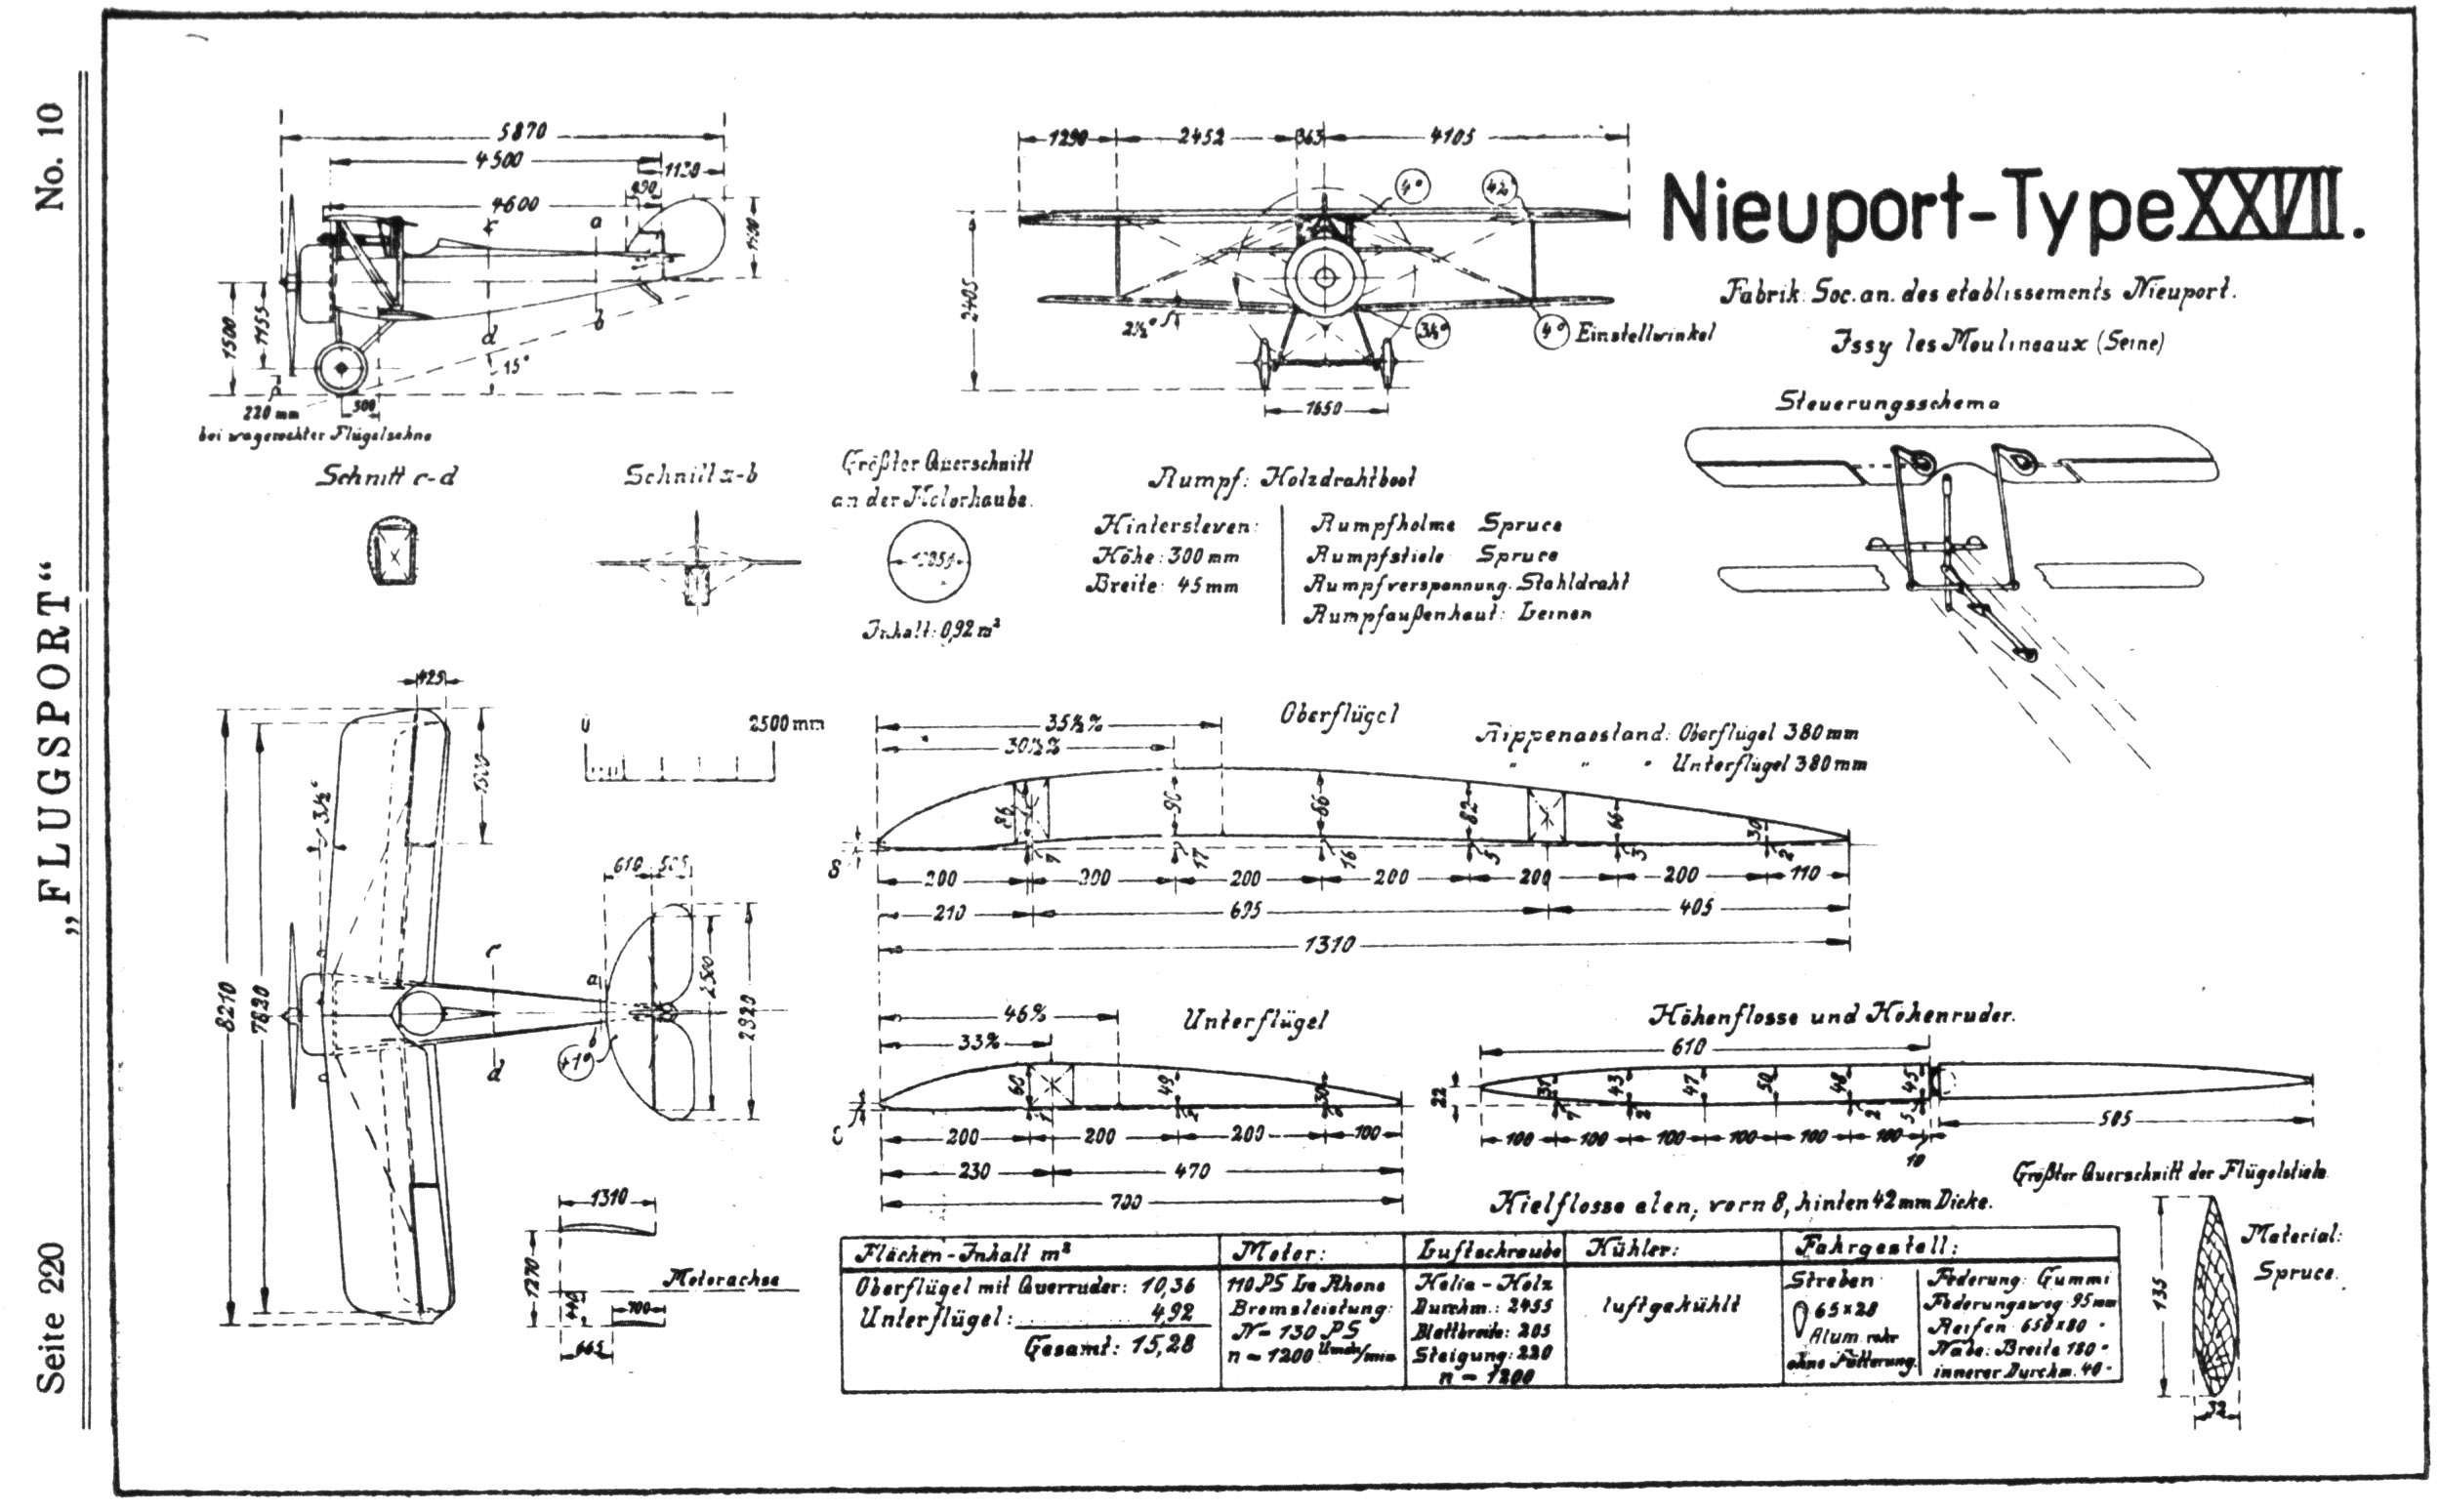 No. 10
„FLUGSPORT“
Seite 220
Nieuport-Type XXVII.
Fabrik: Soc. an. des etablissements Nieuport.
Issy les Moulineaux (Seine)
5870
4500
4600
a
b
d
15°
1500
1155
220 mm
500
bei wagerechter Flügelsehne
1290
2452
363
4105
4°
2405
2½°
3½°
4° Einstellwinkel
1650
Steuerungsschema
Schnitt c-d
Schnitt a-b
Größter Querschnitt
an der Motorhaube.
Inhalt: 0,92 m²
Rumpf: Holzdrahtboot
Hintersteven:
Höhe: 300 mm
Breite: 45 mm
Rumpfholme Spruce
Rumpfstiele Spruce
Rumpfverspannung: Stahldraht
Rumpfaußenhaut: Leinen
425
3½°
8210
610
c
d
a
b
+1°
2500
2920
0
2500 mm
Oberflügel
35½%
30½%
Rippenabstand: Oberflügel 380 mm
" " " Unterflügel 380 mm
86
82
66
30
7
17
16
5
3
2
200
200
200
200
200
200
110
210
695
405
1310
Unterflügel
46%
33%
60
49
30
200
200
200
100
230
470
700
Höhenflosse und Höhenruder.
610
22
43
47
50
48
45
7
2
2
5
100
100
100
100
100
100
10
585
Kielflosse eben, vorn 8, hinten 42 mm Dicke.
Größter Querschnitt der Flügelstiele
135
32
Material:
Spruce.
1310
1270
440
Motorachse
700
665
Flächen-Inhalt m²
Oberflügel mit Querruder: 10,36
Unterflügel: 4,92
Gesamt: 15,28
Motor:
110 PS Le Rhone
Bremsleistung:
N = 130 PS
n = 1200 Umdr/min
Luftschraube
Helia-Holz
Durchm.: 2455
Blattbreite: 205
Steigung: 220
n = 1200
Kühler:
luftgekühlt
Fahrgestell:
Streben
65x28
Alum. rohr
ohne Fütterung.
Federung: Gummi
Federungsweg 95 mm
Reifen 650x80 "
Nabe: Breite 180 "
innerer Durchm. 40 "